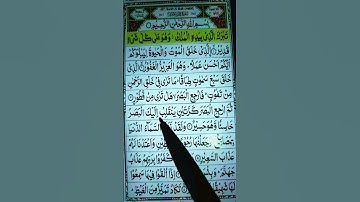 بِسْمِ اللهِ الرَّحْمٰنِ الرَّحِيْمِ
تَبٰرَكَ الَّذِىْ بِيَدِهِ الْمُلْكُ وَهُوَ عَلٰى كُلِّ شَىْءٍ
قَدِيْرٌ الَّذِىْ خَلَقَ الْمَوْتَ وَالْحَيٰوةَ لِيَبْلُوَكُمْ
اَيُّكُمْ اَحْسَنُ عَمَلًا وَهُوَ الْعَزِيْزُ الْغَفُوْرُ الَّذِىْ
خَلَقَ سَبْعَ سَمٰوٰتٍ طِبَاقًا مَا تَرٰى فِىْ خَلْقِ الرَّحْمٰنِ
مِنْ تَفٰوُتٍ فَارْجِعِ الْبَصَرَ هَلْ تَرٰى مِنْ فُطُوْرٍ
ثُمَّ ارْجِعِ الْبَصَرَ كَرَّتَيْنِ يَنْقَلِبْ اِلَيْكَ الْبَصَرُ
خَاسِئًا وَّهُوَ حَسِيْرٌ وَلَقَدْ السَّمَآءَ الدُّنْيَا
وَجَعَلْنٰهَا رُجُوْمًا وَاَعْتَدْنَا لَهُمْ
عَذَابَ السَّعِيْرِ كَفَرُوْا بِرَبِّهِمْ عَذَابُ
جَهَنَّمَ اِذَآ اُلْقُوْا فِيْهَا سَمِعُوْا
لَهَا شَهِيْقًا تَكَادُ تَمَيَّزُ مِنَ الْغَيْظِ